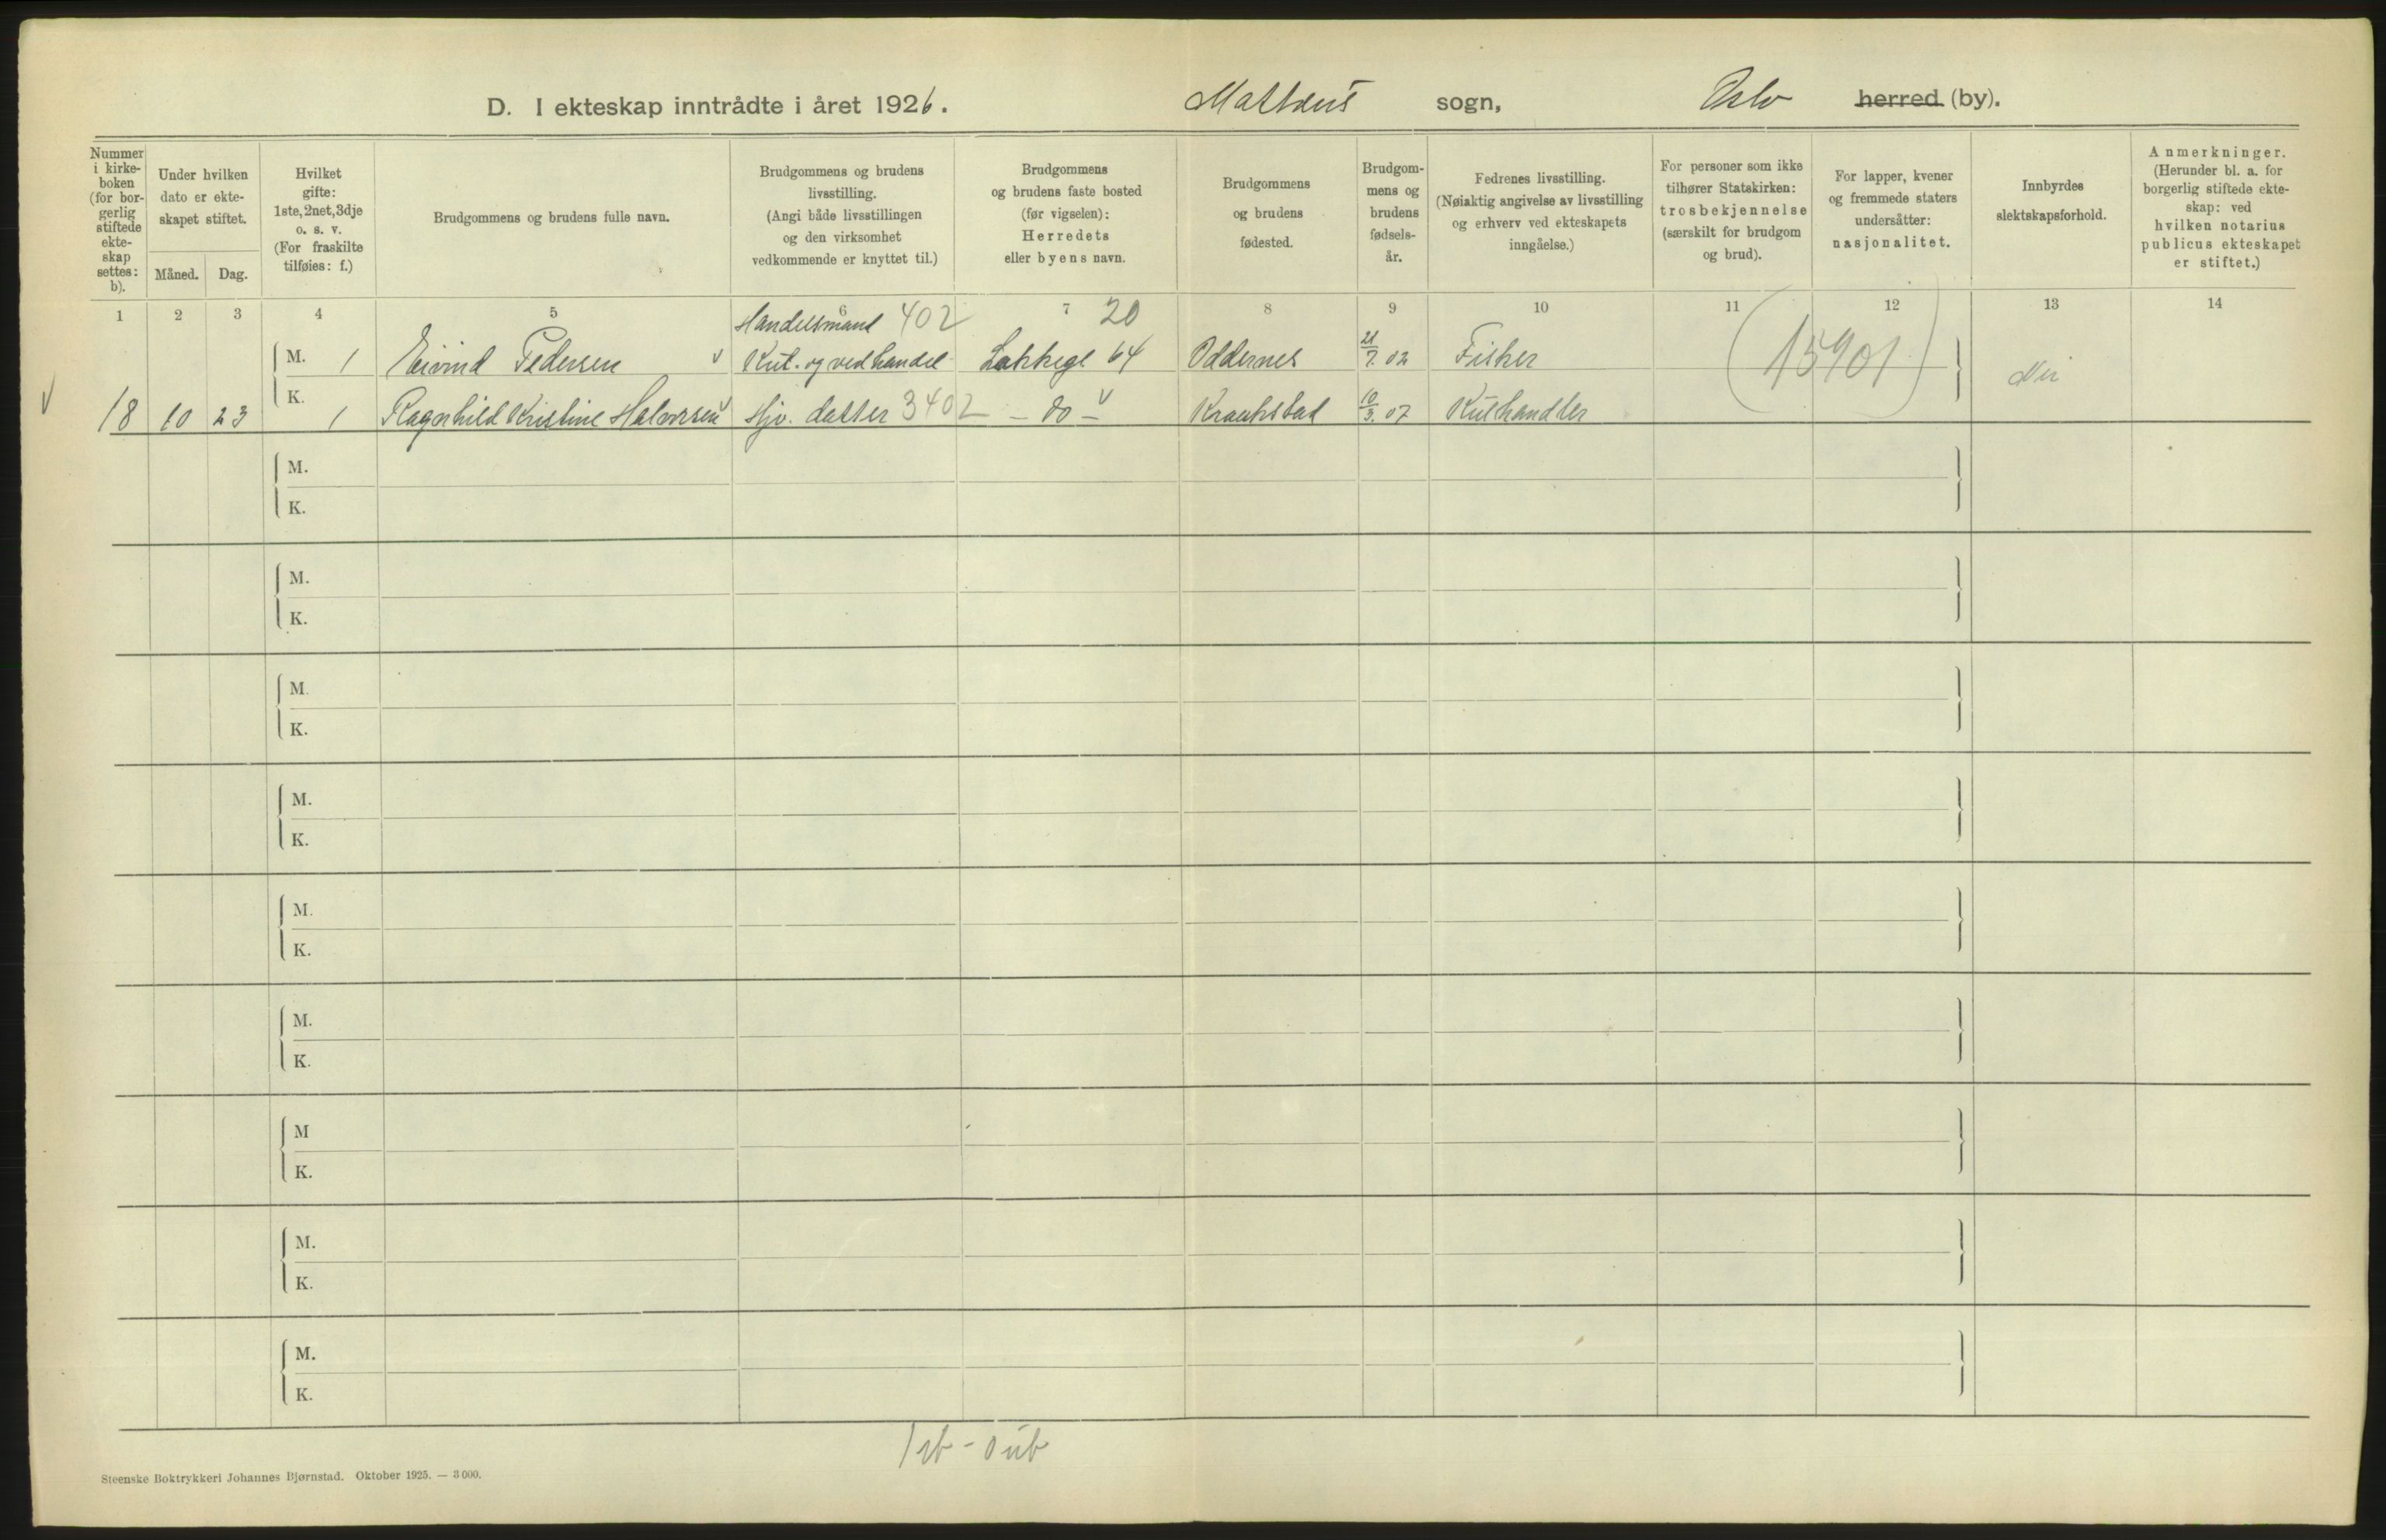 D. I ekteskap inntrådte i året 1926. Matteus sogn, Oslo herred (by).
Nummer i kirke- boken (for bor- gerlig stiftede ekte- skap settes: b).
Under hvilken dato er ekte- skapet stiftet.
Måned. Dag.
Hvilket gifte: 1ste, 2net, 3dje o. s. v. (For fraskilte tilføies: f.)
Brudgommens og brudens fulle navn.
Brudgommens og brudens livsstilling. (Angi både livsstillingen og den virksomhet vedkommende er knyttet til.)
Brudgommens og brudens faste bosted (før vigselen): Herredets eller byens navn.
Brudgommens og brudens fødested.
Brudgom- mens og brudens fødsels- år.
Fedrenes livsstilling. (Nøiaktig angivelse av livsstilling og erhverv ved ekteskapets inngåelse.)
For personer som ikke tilhører Statskirken: trosbekjennelse (særskilt for brudgom og brud).
For lapper, kvener og fremmede staters undersåtter: nasjonalitet.
Innbyrdes slektskapsforhold.
Anmerkninger. (Herunder bl. a. for borgerlig stiftede ekte- skap: ved hvilken notarius publicus ekteskapet er stiftet.)
1 2 3 4 5 6 7 8 9 10 11 12 13 14
Handelsmand 402 20
M. 1 Eivind Pedersen v Kul. og vedhandel Lakkegt 64 Oddernes 21/7. 02 Fisker (15901) Nei
v 18 10 23 K. 1 Ragnhild Kristine Halvorsen v Hjv. datter 3402 – do – v Kraakstad 10/3. 07 Kulhandler
M.
K.
M.
K.
M.
K.
M.
K.
M.
K.
M.
K.
M
K.
M.
K.
M.
K.
Steenske Boktrykkeri Johannes Bjørnstad. Oktober 1925. — 3000.